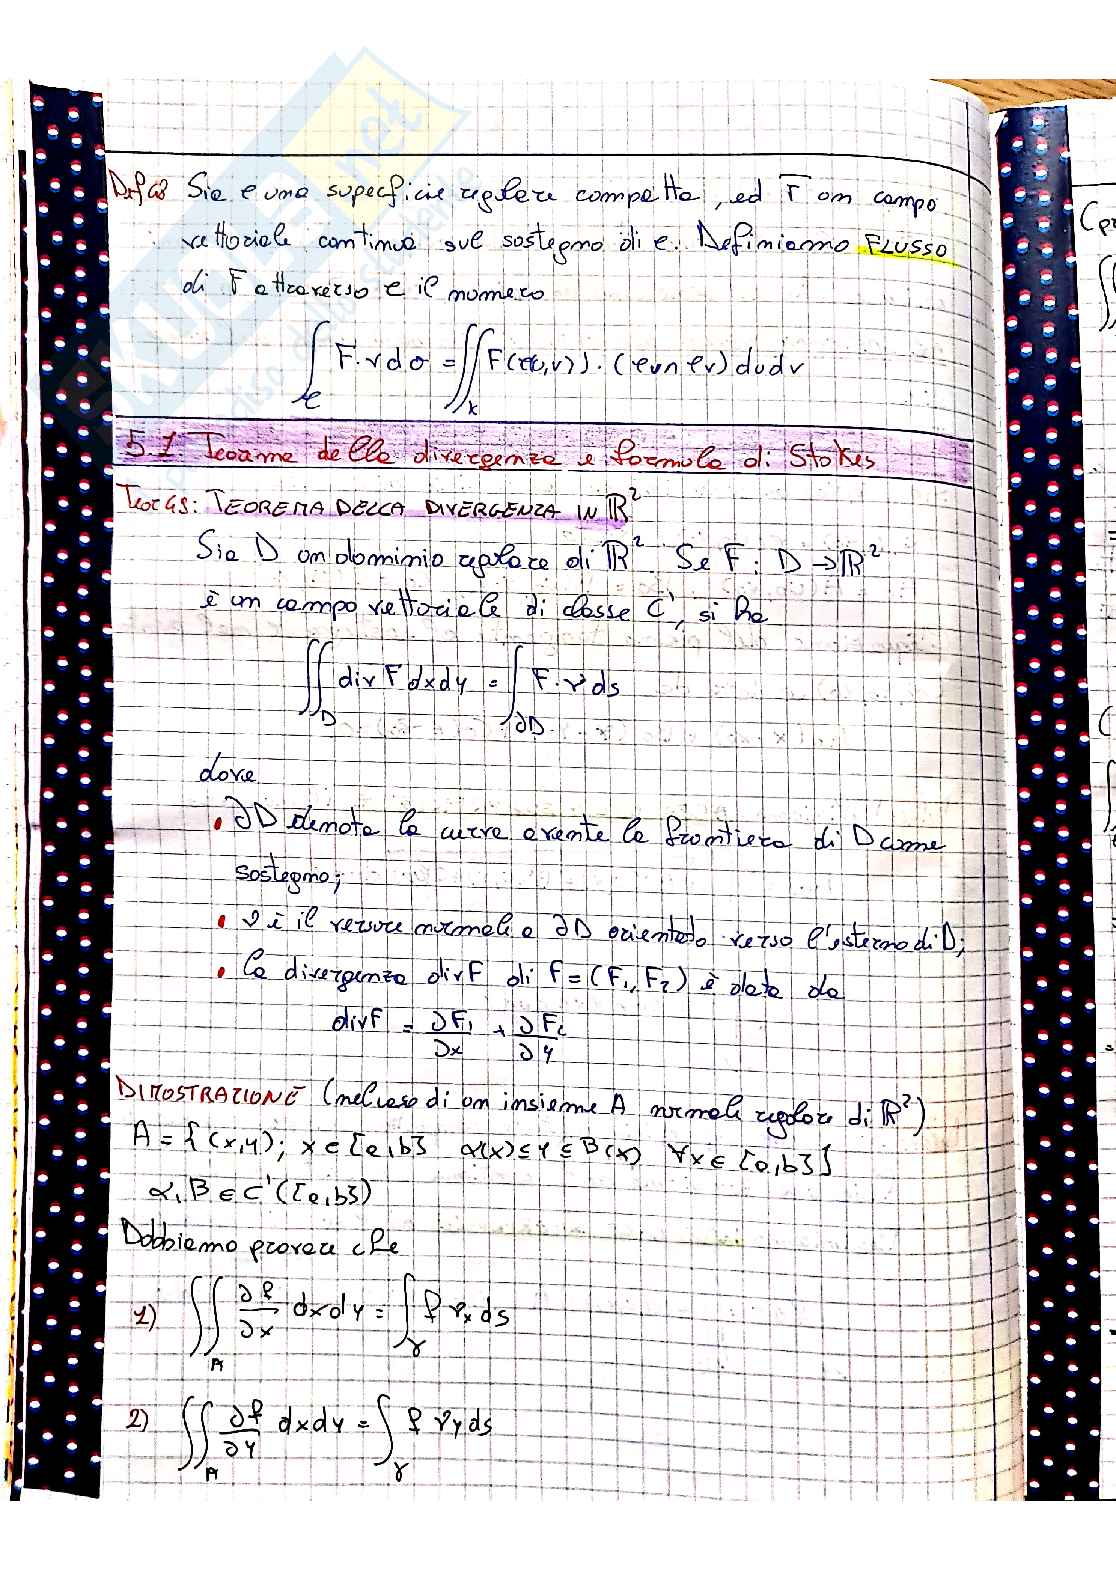 Sia e una superficie regolare compatta, ed F un campo
vettoriale continuo sul sostegno di e. Definiamo FLUSSO
di F attraverso e il numero
∫_e F·ν dσ = ∬_K F(e(u,v))·(e_u ∧ e_v) du dv
5.1 Teorema della divergenza e formula di Stokes
Teor 48: TEOREMA DELLA DIVERGENZA IN ℝ²
Sia D un dominio regolare di ℝ². Se F: D → ℝ²
è un campo vettoriale di classe C¹, si ha
∬_D div F dx dy = ∫_∂D F·ν ds
dove
• ∂D denota la curva avente la frontiera di D come
sostegno;
• ν è il versore normale a ∂D orientato verso l'esterno di D;
• la divergenza div F di F = (F₁, F₂) è data da
div F = ∂F₁/∂x + ∂F₂/∂y
DIMOSTRAZIONE (nel caso di un insieme A normale regolare di ℝ²)
A = {(x,y); x ∈ [a,b] α(x) ≤ y ≤ β(x) ∀x ∈ [a,b]}
α, β ∈ C¹([a,b])
Dobbiamo provare che
1) ∬_A ∂f/∂x dx dy = ∫_γ f ν_x ds
2) ∬_A ∂f/∂y dx dy = ∫_γ f ν_y ds